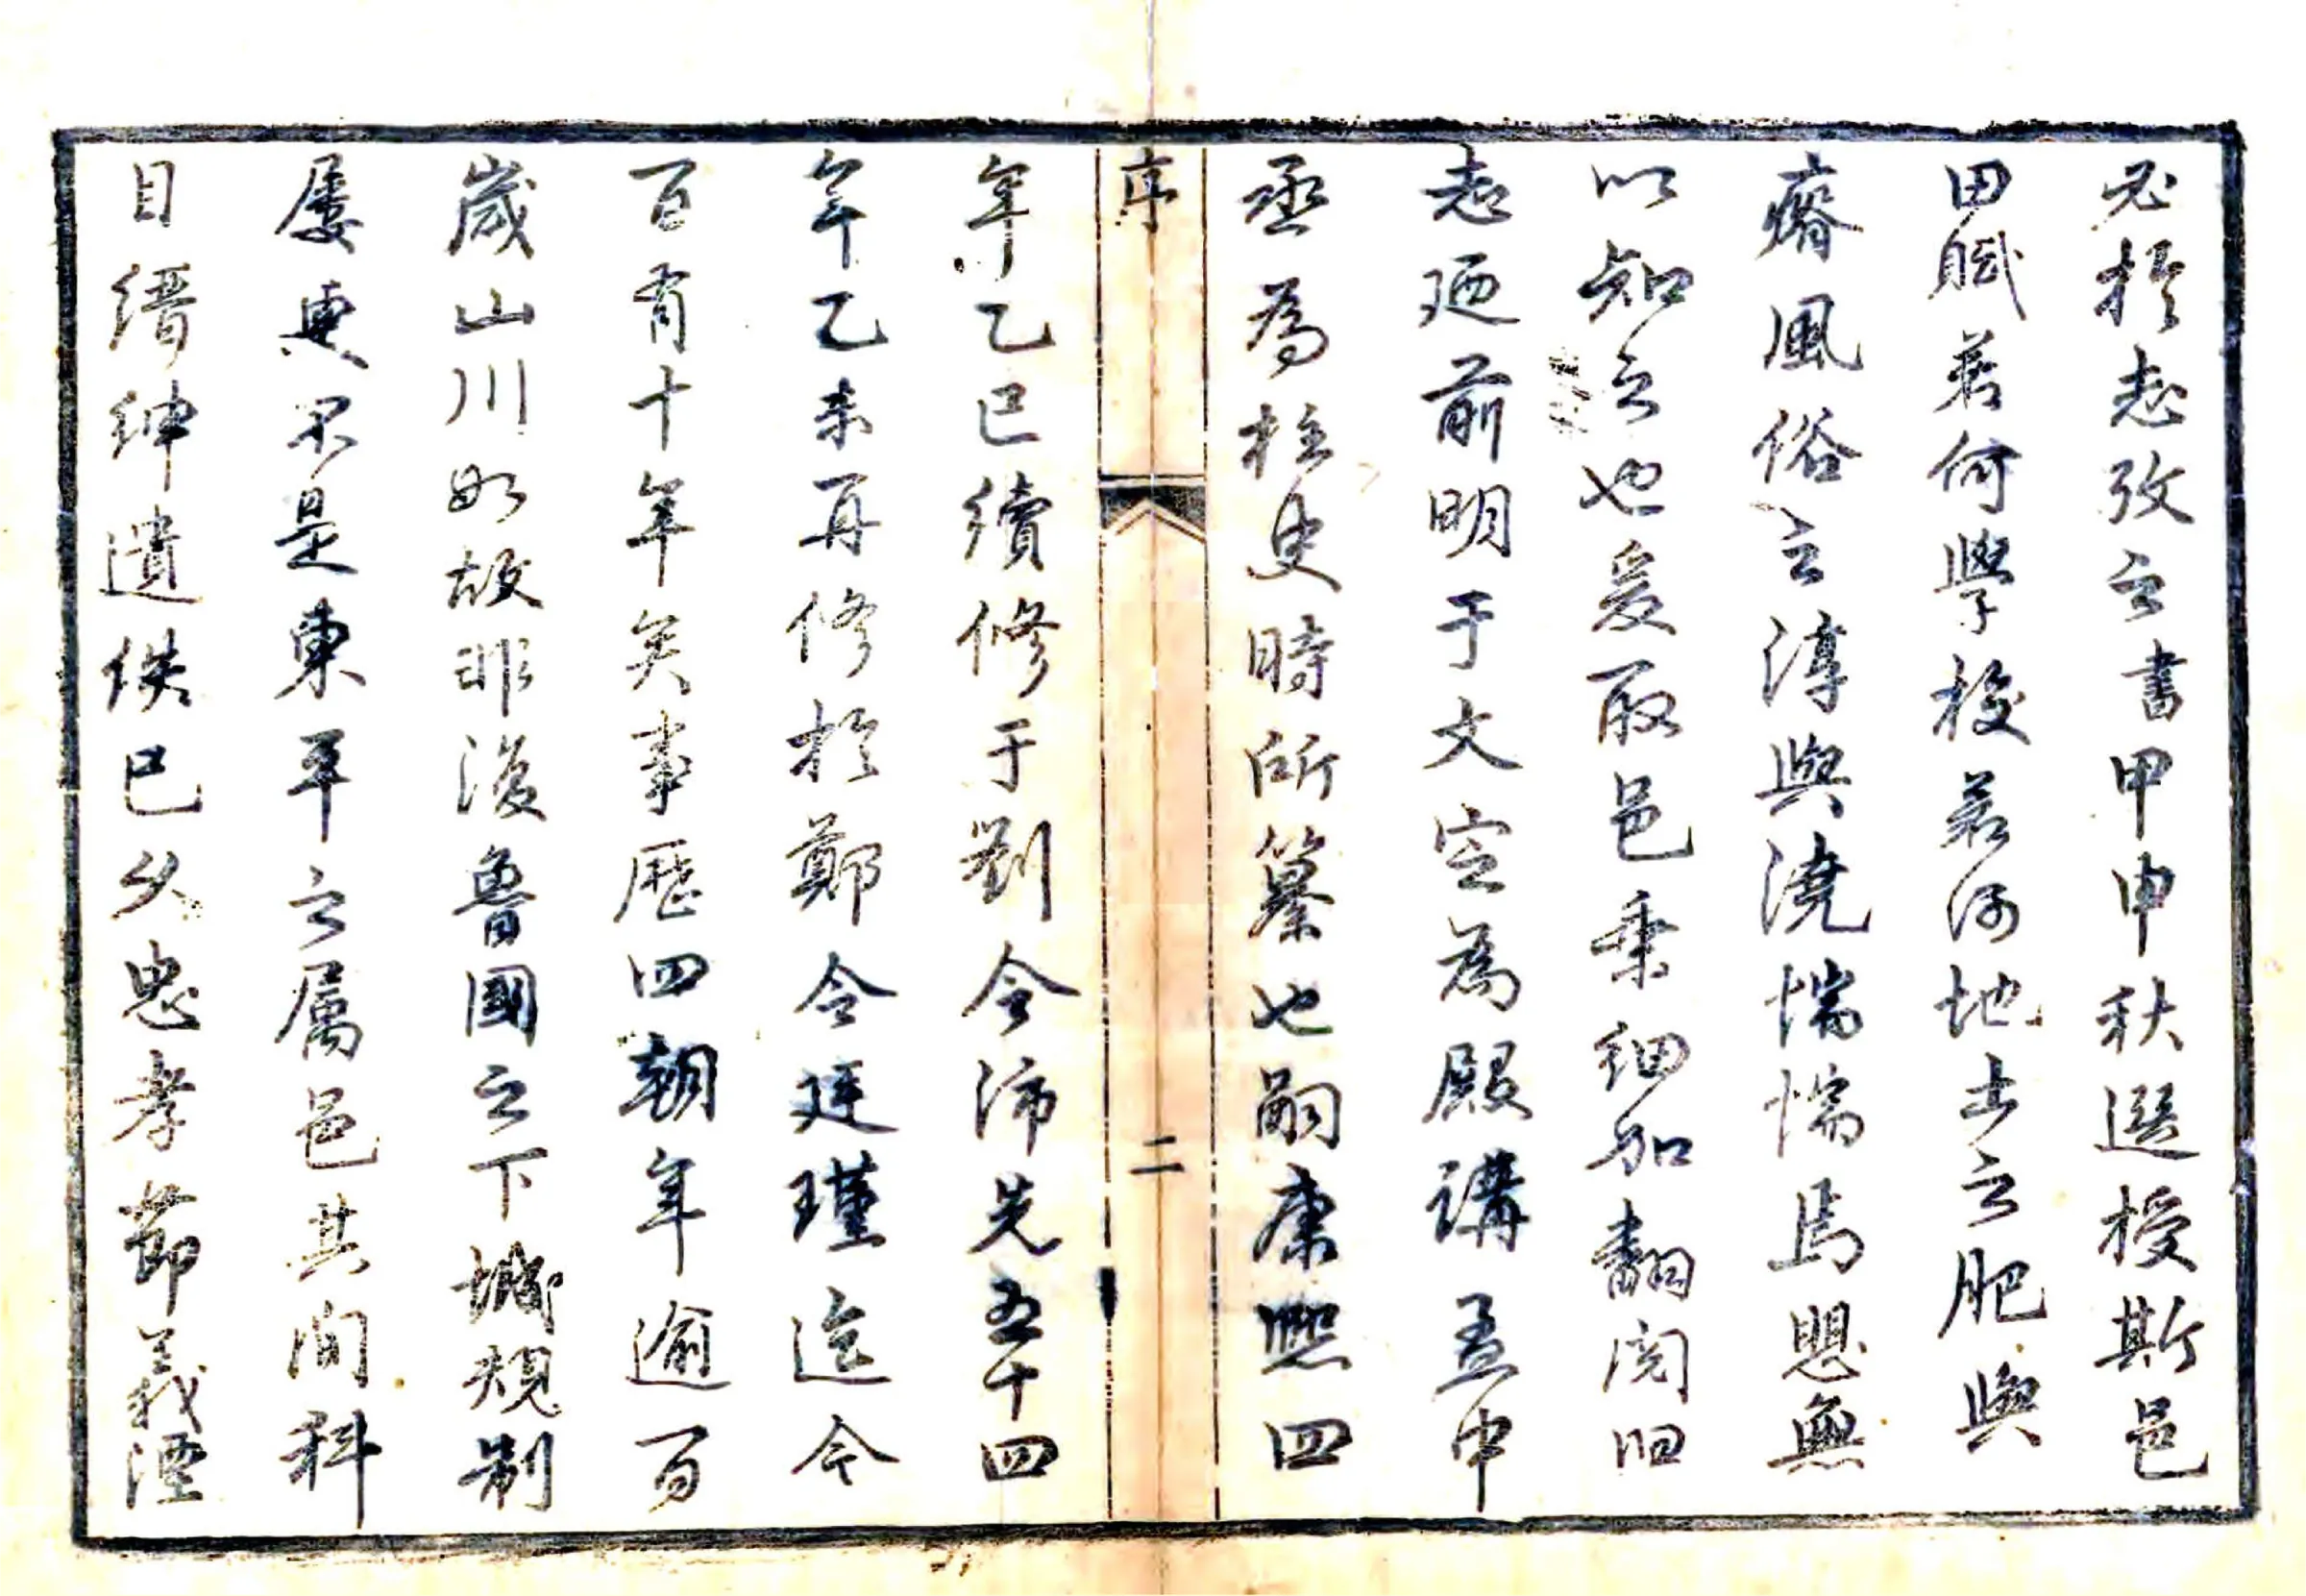 必於志攷之書甲申秋選授斯邑
田賦若何學校若何地土之肥與
瘠風俗之淳與澆惴惴焉懼無
以知之也爰取邑乘細加翻閱旧
志廼前明于文定為殿講孟中
丞為柱史時所纂也嗣康熙四
序
二
年乙巳續修于劉令沛先五十四
年乙未再修於鄭令廷瑾迄今
百有十年矣事歷四朝年逾百
歲山川如故非復魯國之下城規制
屢更不是東平之屬邑其間科
目縉紳遺佚已久忠孝節義湮